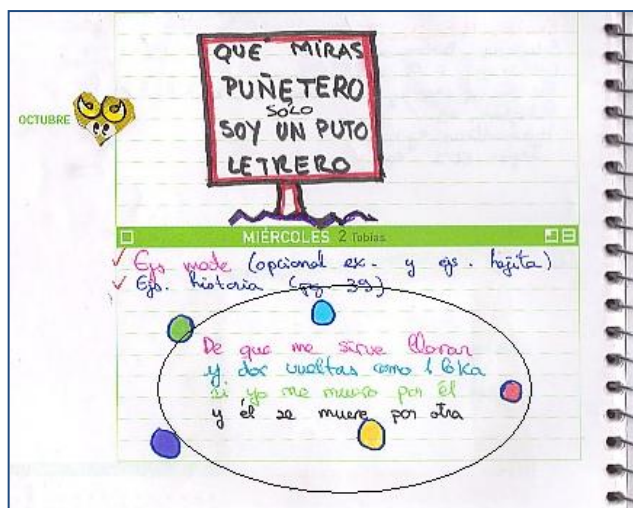 QUÉ MIRAS
PUÑETERO
SÓLO
SOY UN PUTO
LETRERO
OCTUBRE
MIÉRCOLES 2 Tobías
Ejs mate (opcional ex. y ejs. hojita)
Ejs. historia (pg 39)
De que me sirve llorar
y dar vueltas como 1 loka
si yo me muero por él
y él se muere por otra